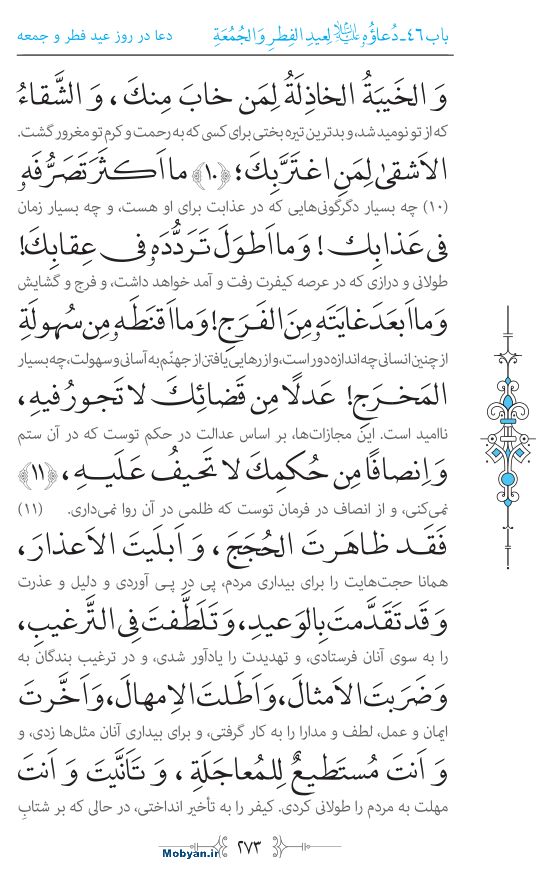 باب ٤٦ـ دُعاؤُه لِعیدِ الفِطرِ وَ الجُمُعَةِ
دعا در روز عید فطر و جمعه
وَ الخَیبَةُ الخاذِلَةُ لِمَن خابَ مِنكَ ، وَ الشَّقاءُ
که از تو نومید شد، و بدترین تیره بختی برای کسی که به رحمت و کرم تو مغرور گشت.
الاَشقیٰ لِمَنِ اغتَرَّ بِكَ؛ ﴿١٠﴾ ما اَکثَرَ تَصَرُّفَهٗ
(١٠) چه بسیار دگرگونی‌هایی که در عذابت برای او هست، و چه بسیار زمان
فی عَذابِك ! وَ ما اَطوَلَ تَرَدُّدَهٗ فی عِقابِكَ!
طولانی و درازی که در عرصه کیفرت رفت و آمد خواهد داشت، و فرج و گشایش
وَ ما اَبعَدَ غایَتَهٗ مِنَ الفَرَجِ! وَ ما اَقنَطَهٗ مِن سُهولَةِ
از چنین انسانی چه اندازه دور است، و از رهایی یافتن از جهنّم به آسانی و سهولت، چه بسیار
المَخرَجِ! عَدلًا مِن قَضائِكَ لا تَجورُ فیهِ،
ناامید است. این مجازات‌ها، بر اساس عدالت در حکم توست که در آن ستم
وَ اِنصافًا مِن حُکمِكَ لا تَحیفُ عَلَیهِ ، ﴿١١﴾
نمی‌کنی، و از انصاف در فرمان توست که ظلمی در آن روا نمی‌داری. (١١)
فَقَد ظاهَرتَ الحُجَجَ ، وَ اَبلَیتَ الاَعذارَ،
همانا حجت‌هایت را برای بیداری مردم، پی در پی آوردی و دلیل و عذرت
وَ قَد تَقَدَّمتَ بِالوَعیدِ، وَ تَلَطَّفتَ فِی التَّرغیبِ،
را به سوی آنان فرستادی، و تهدیدت را یادآور شدی، و در ترغیب بندگان به
وَ ضَرَبتَ الاَمثالَ، وَ اَطَلتَ الاِمهالَ، وَ اَخَّرتَ
ایمان و عمل، لطف و مدارا را به کار گرفتی، و برای بیداری آنان مثل‌ها زدی، و
وَ اَنتَ مُستَطیعٌ لِلمُعاجَلَةِ ، وَ تَاَنَّیتَ وَ اَنتَ
مهلت به مردم را طولانی کردی. کیفر را به تأخیر انداختی، در حالی که بر شتابِ
٢٧٣
Mobyan.ir